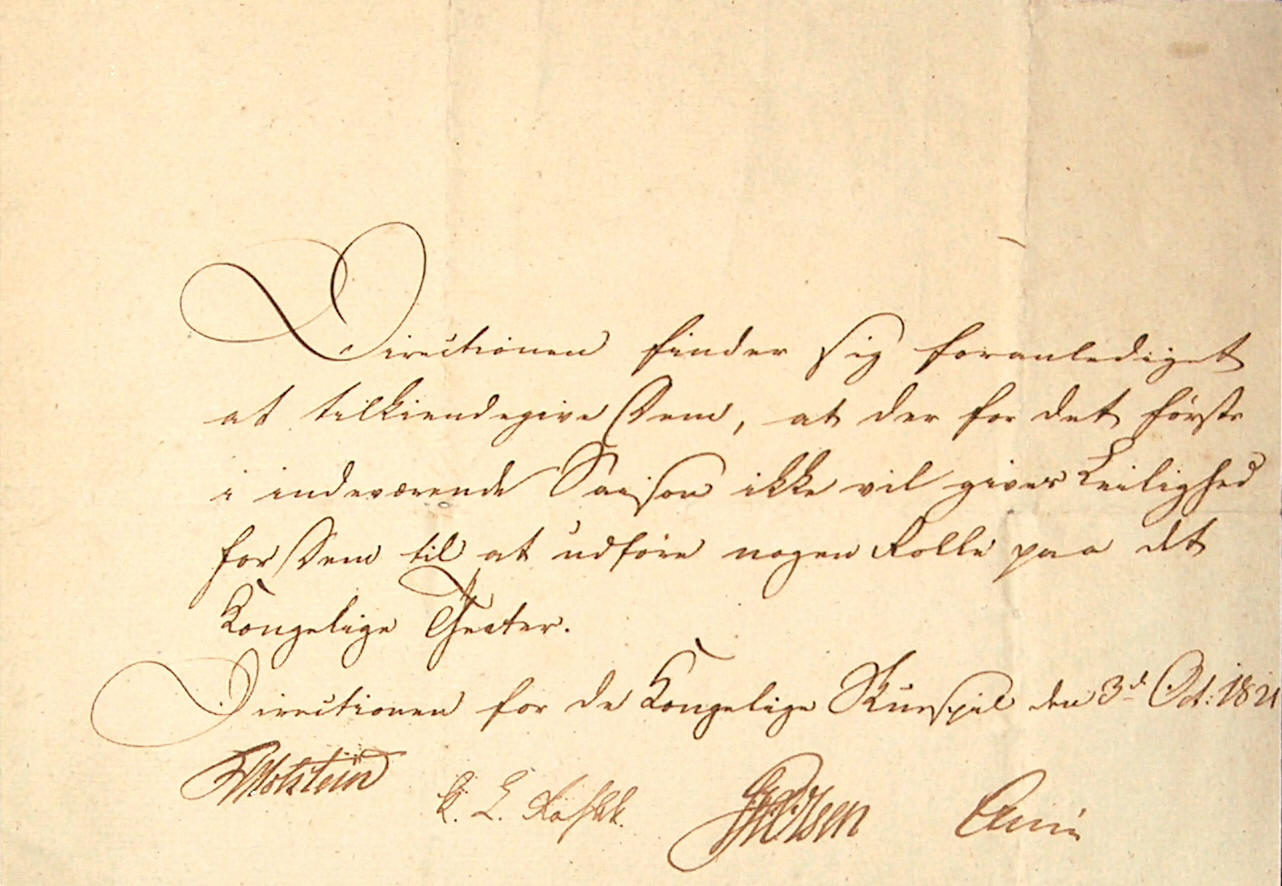 Directionen finder sig foranlediget
at tilkiendegive Dem, at der for det förste
i indeværende Saison ikke vil gives Leilighed
for Dem til at udföre nogen Rolle paa det
Kongelige Theater.
Directionen for de Kongelige Skuespil den 3d Oct: 1821
Holstein
K. L. Rahbek. GHOlsen Collin